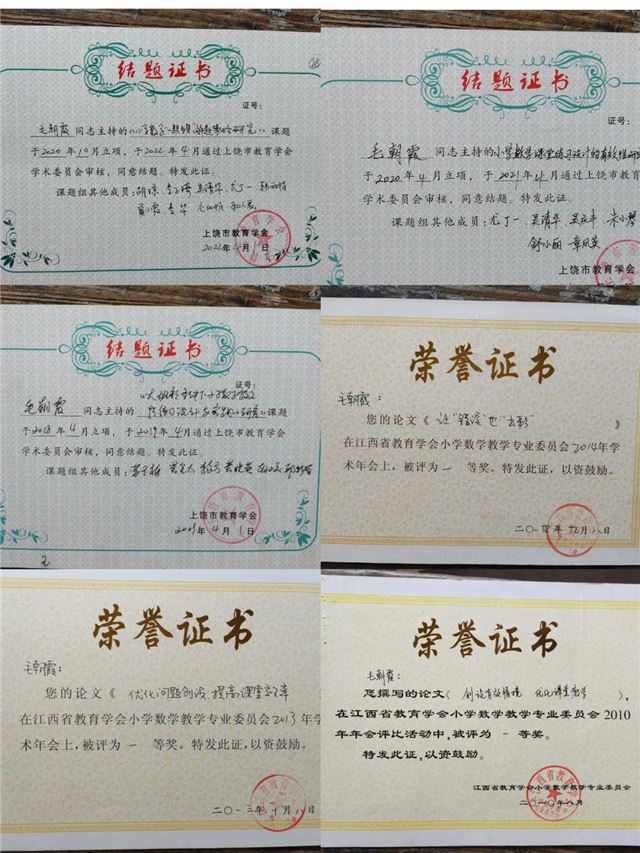 结题证书
证号：
毛朝霞 同志主持的 课题
于2020年10月立项，于2022年4月通过上饶市教育学会
学术委员会审核，同意结题。特发此证。
课题组其他成员：
上饶市教育学会
2022年4月1日
结题证书
证号：
毛朝霞 同志主持的小学数学课堂练习设计的有效性研究
于2020年4月立项，于2021年4月通过上饶市教育学会
学术委员会审核，同意结题。特发此证。
课题组其他成员：尤丁一 吴清华
上饶市教育学会
结题证书
证号：
毛朝霞 同志主持的 课题
于2018年4月立项，于2019年4月通过上饶市教育学会
学术委员会审核，同意结题。特发此证。
课题组其他成员：
上饶市教育学会
2019年4月1日
荣誉证书
毛朝霞：
您的论文《让“错误”也“出彩”》
在江西省教育学会小学数学教学专业委员会2014年学
术年会上，被评为一等奖。特发此证，以资鼓励。
二〇一四年十二月八日
荣誉证书
毛朝霞：
您的论文《优化问题创设，提高课堂效率》
在江西省教育学会小学数学教学专业委员会2013年学
术年会上，被评为一等奖。特发此证，以资鼓励。
二〇一三年十月八日
荣誉证书
毛朝霞：
您撰写的论文《创设有效情境 优化课堂教学》，
在江西省教育学会小学数学教学专业委员会2010
年年会评比活动中，被评为一等奖。
特发此证，以资鼓励。
江西省教育学会小学数学教学专业委员会
二〇一〇年八月